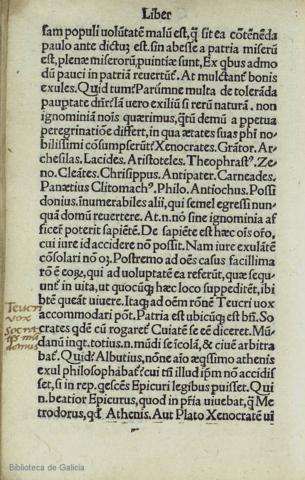 Liber
sam populi volũtatẽ malũ est, q̃ sit ea cõtẽnẽda
paulo ante dictuȝ est. sin abesse a patria miserũ
est, plenæ miserorũ, puintiæ sunt, Ex qbus admo
dũ pauci in patriã revertunĩ. At mulctanĩ bonis
exules. Quid tum? Parũmne multa de tolerãda
paupĩate dñrĩ
Iam vero exiliũ si rerũ naturã . non
ignominiã noĩs quærimus, q̃tũ demũ a ppetua
peregrinatiõe differt, in qua ætates suas phi no-
bilissimi cõsumpserũt? Xenocrates. Crãtor. Ar
chesilas. Lacides. Aristoteles. Theophrastꝰ. Ze
no. Cleãtes. Chrisippus. Antipater. Carneades.
Panætius Clitomachꝰ. Philo. Antiochus. Possi
donius. inumerabiles alii, qui semel egressi nun-
quã domũ revertere. At .n. nõ sine ignominia af
ficeret poterit sapiẽtẽ. De sapiẽte est hæc oĩs ofo,
cui iure id accidere nõ possit. Nam iure exulatẽ
cõsolari nõ oȝ. Postremo ad oẽs casus facillima
rõ ẽ eoꝝ, qui ad voluptatẽ ea referũt, quæ sequũ
unt in vita, ut quocũqȝ hæc loco suppeditẽt, ibi
btẽ queãt vivere. Itaqȝ ad oẽm rõnẽ Teucri vox
accommodari põt. Patria est ubicũqȝ est bñ. So
crates qdẽ cũ rogareĩ. Cuiatẽ se eẽ diceret. Mũ-
danũ inqt. totius .n. mũdi se icolã, & civẽ arbitra
baĩ. Quid? Albutius, nõne aĩo æqssimo athenis
exul philosophabaĩ? cui tñ illud ipm nõ accidis
set, si in rep. qescẽs Epicuri legibus puisset. Qui
.n. beatior Epicurus, quod in pria vivebat, q̃ Me
trodorus, qd Athenis. Aut Plato Xenocratẽ vi
Teucri
vox
Socra-
tes mũ
danus
Biblioteca de Galicia